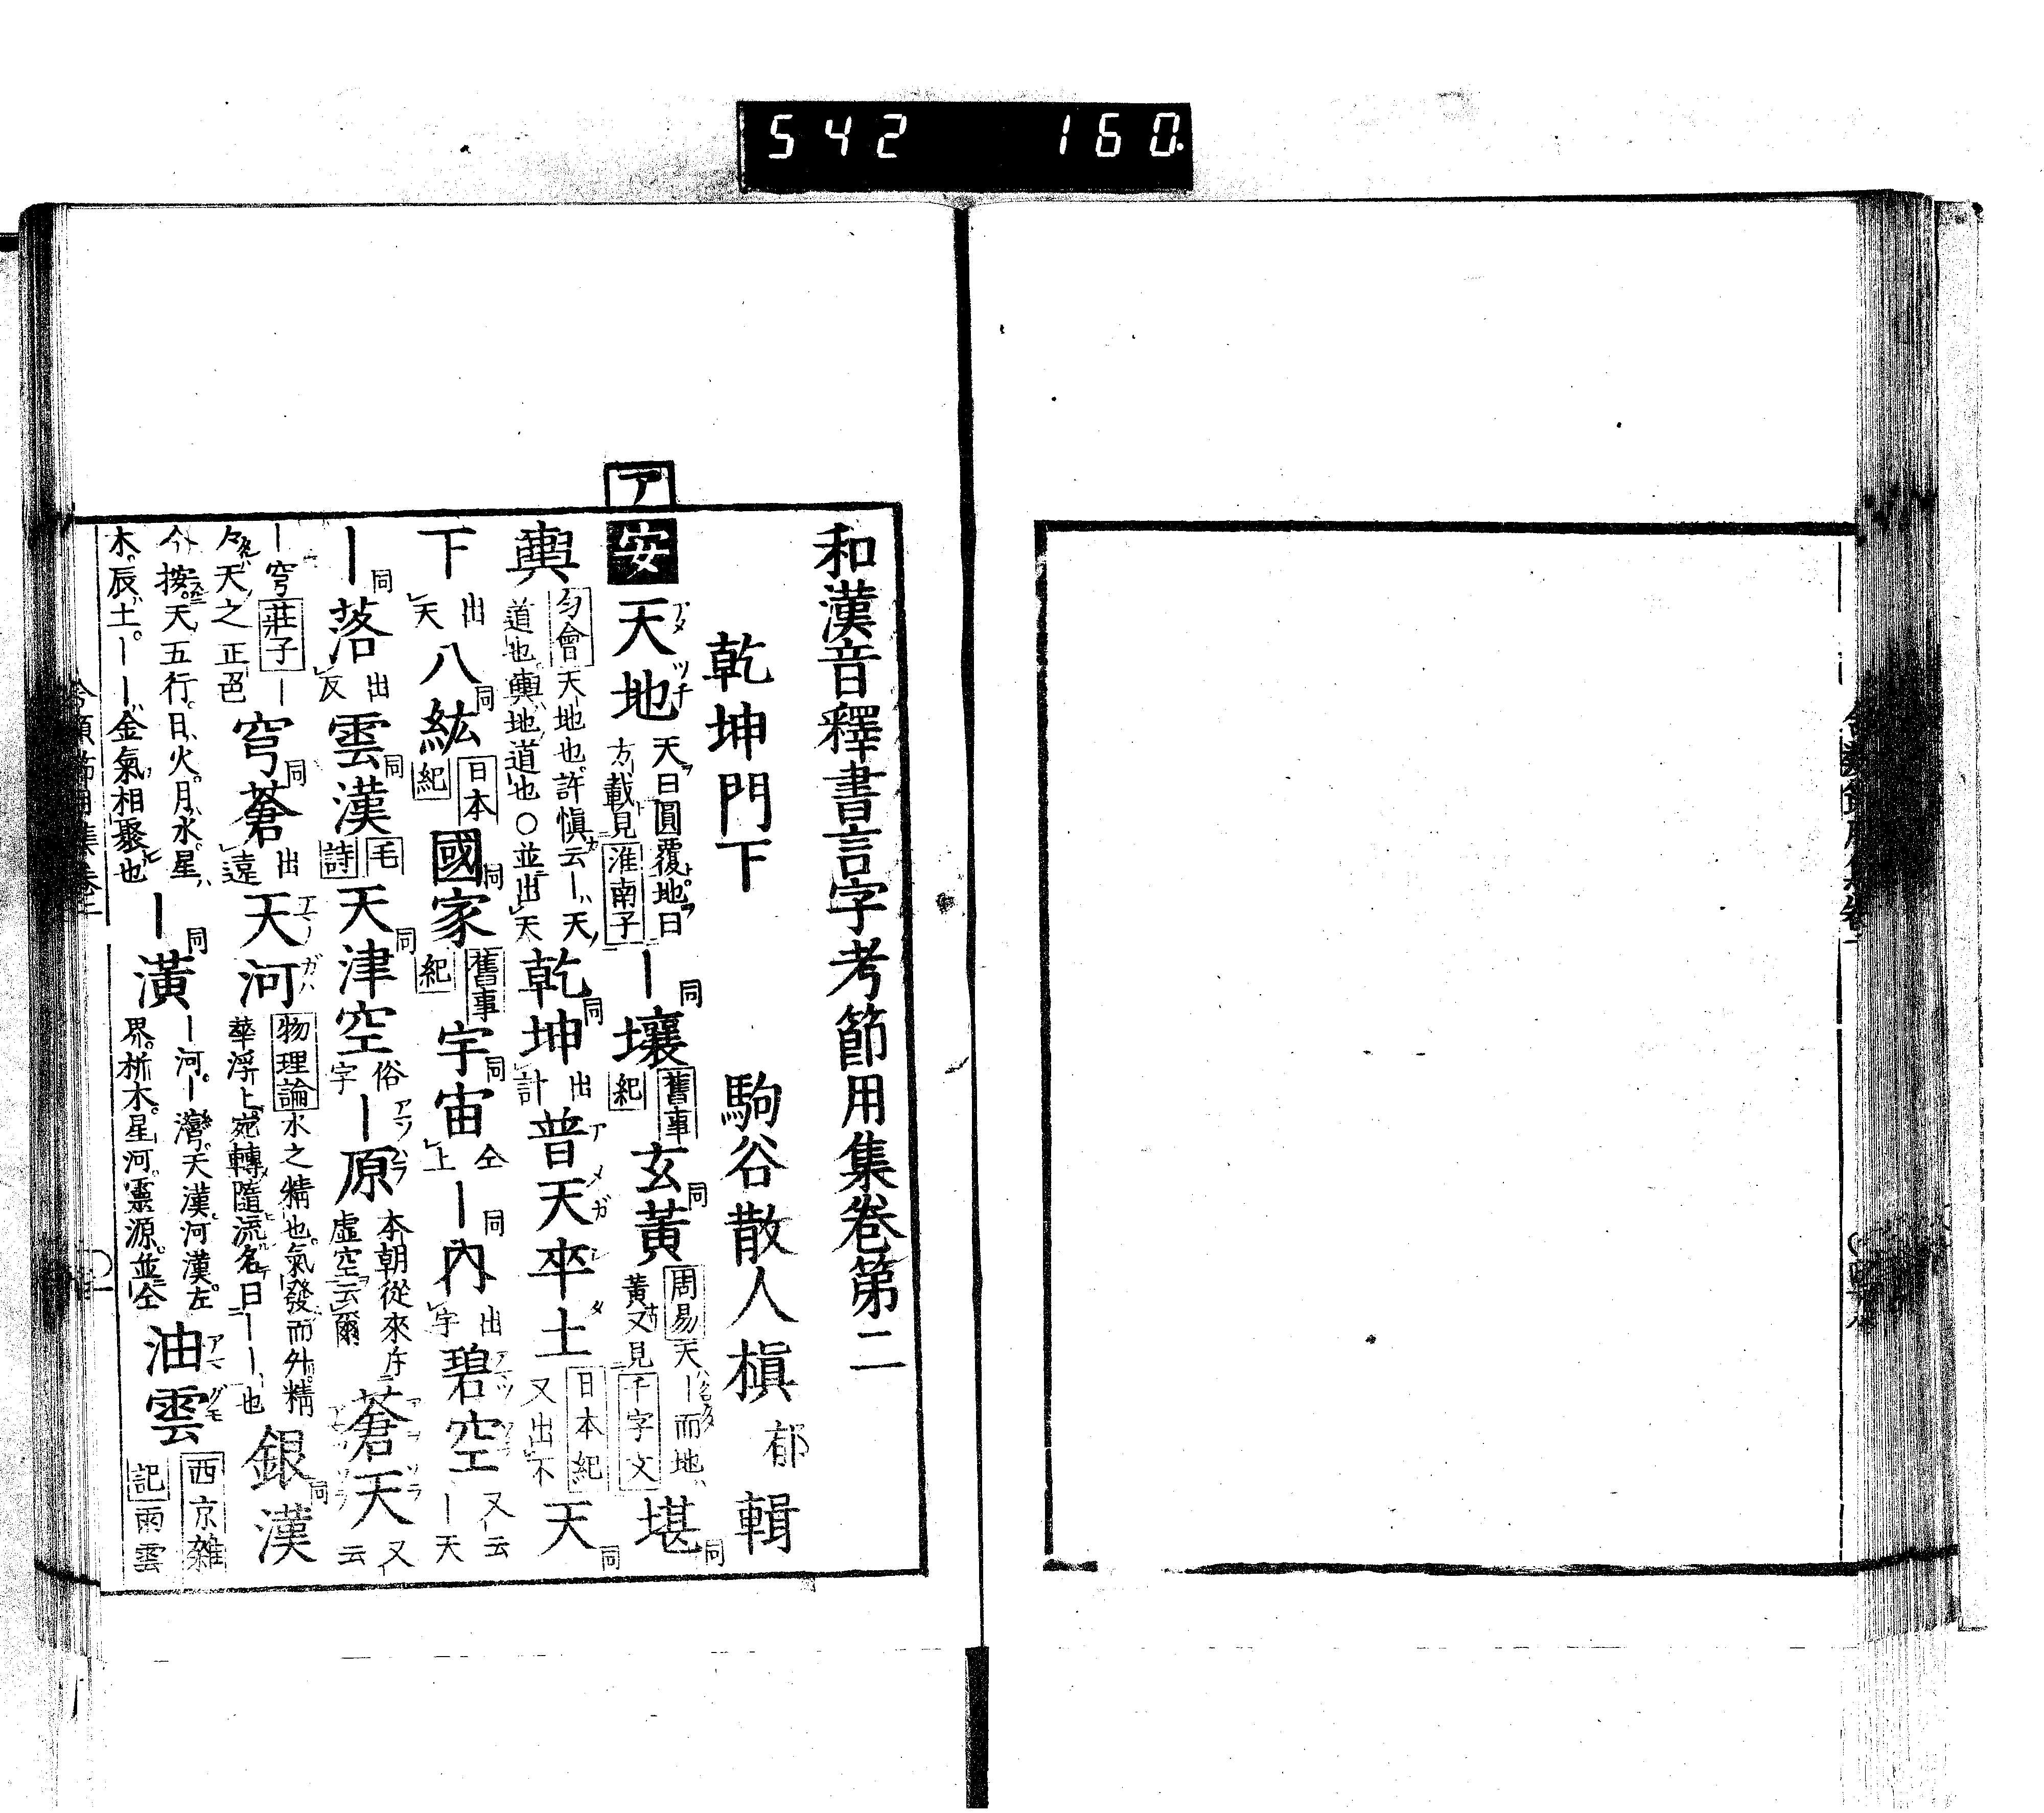 542 160
和漢音釋書言字考節用集卷第二
乾坤門下 駒谷散人槙郁輯
ア
安 天地 天曰圓覆地曰方載見淮南子 ー壤 同 舊事紀 玄黃 同 周易天ー而地黃又見千字文 堪 同
輿 匀會天地也許愼云ー天道也輿地道也○並出天 乾坤 同 出計 普天卒土 アメガシタ 日本紀又出不 天 同
下 出天 八紘 同 日本紀 國家 同 舊事紀 宇宙 同 仝上 ー內 同 出宇 碧空 又云ー天
ー落 同 出反 雲漢 同 毛詩 天津空 同 俗字 ー原 本朝從來斥虛空云爾 蒼天 又云
ー穹 莊子ー々天之正色 穹蒼 同 出遠 天河 アマノガハ 物理論水之精也氣發而外精華浮上宛轉隨流名曰ーー也 銀漢 同
今按天五行日火月水星木辰土ーー金氣相聚也 ー潢 同 ー河ー灣天漢河漢左界析木星河靈源並仝 油雲 アマグモ 西京雜記雨雲